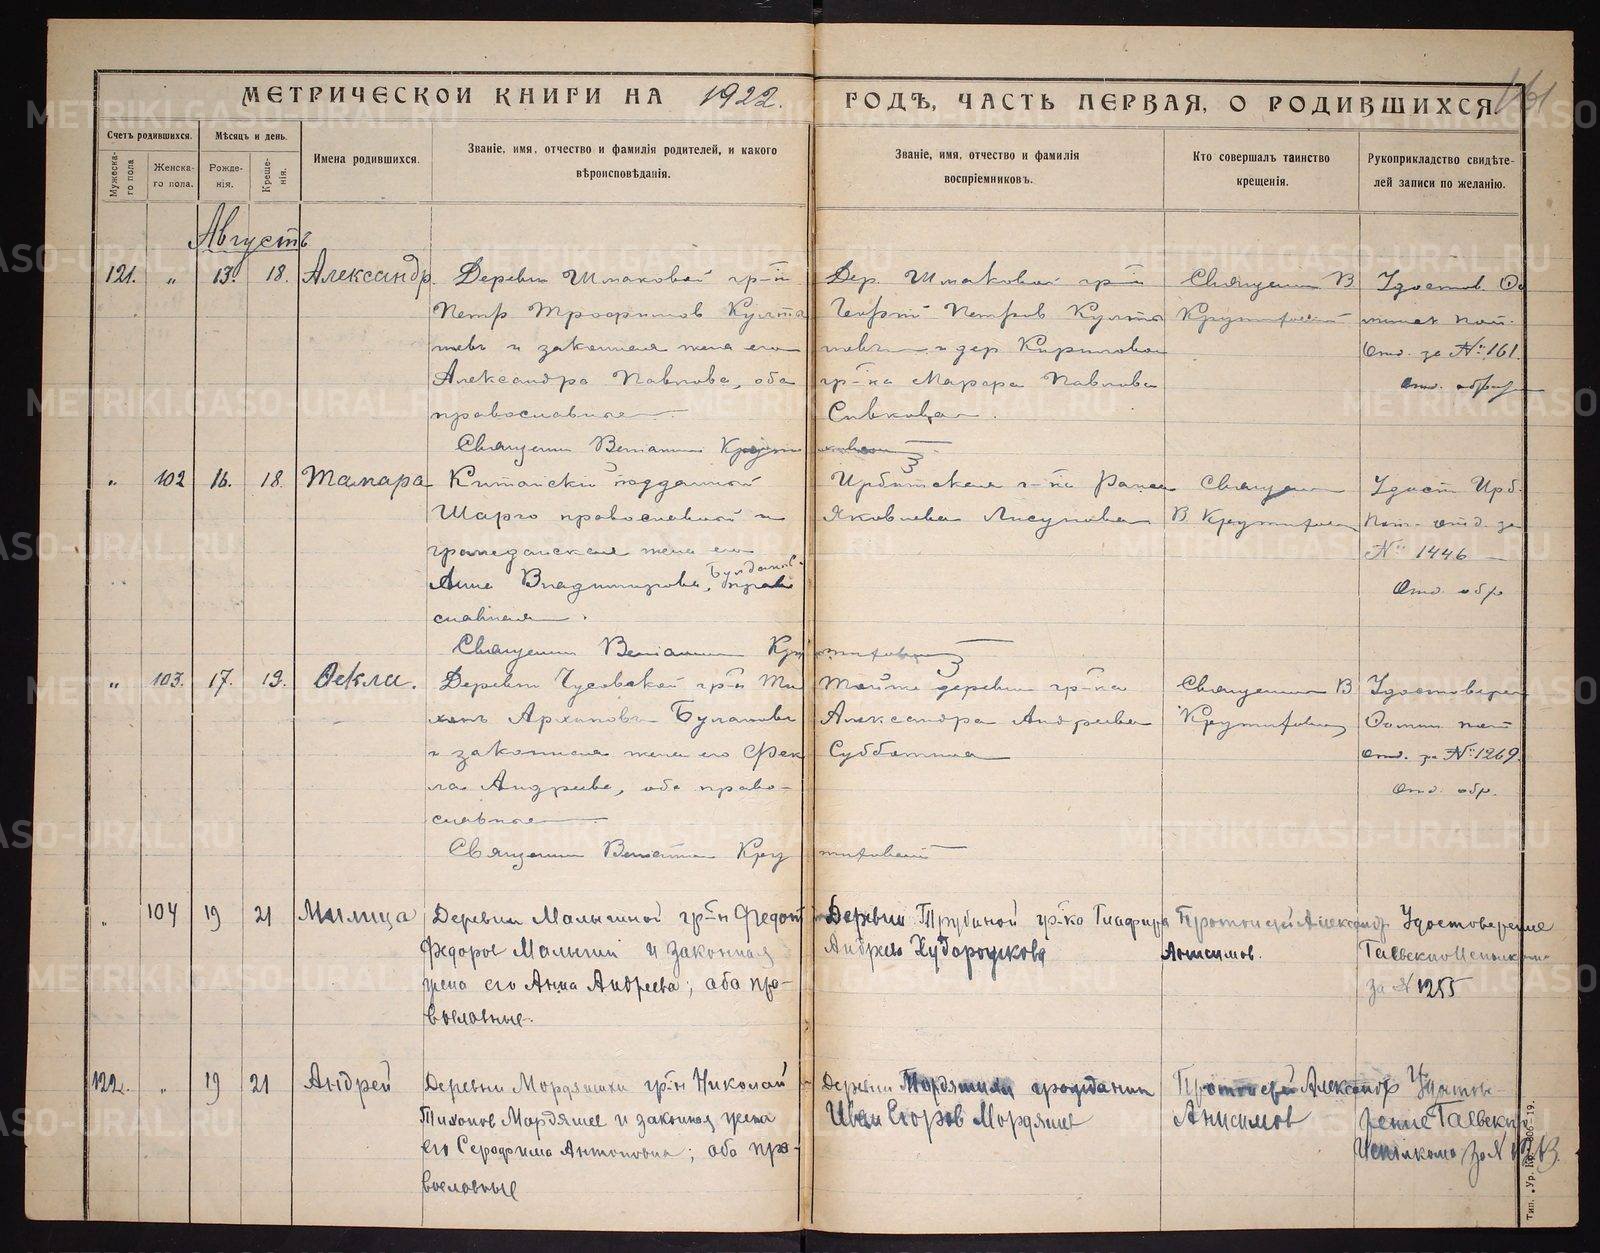 МЕТРИЧЕСКОЙ КНИГИ НА 1922. ГОДЪ, ЧАСТЬ ПЕРВАЯ, О РОДИВШИХСЯ.
161
Счетъ родившихся.
Мужеска-го пола
Женска-го пола.
Мѣсяцъ и день.
Рожде-нія.
Креще-нія.
Имена родившихся.
Званіе, имя, отчество и фамилія родителей, и какого
вѣроисповѣданія.
Званіе, имя, отчество и фамилія
воспріемниковъ.
Кто совершалъ таинство
крещенія.
Рукоприкладство свидѣте-
лей записи по желанію.
Августъ
121. „ 13. 18. Александр.
Деревни Шмаковой гр-н
Петр Трофимов
и законная жена его
Александра Павлова, оба
православные
Дер. Шмаковой гр-н
Георгий Петров
и дер. Кириловой
гр-ка Марфа Павлова
Сивкова.
Священник В.
Крутиховский
Удостов.
за № 161.
Священник Вениамин Крутиховский
„ 102 16. 18. Тамара
Китайский подданный
Шарго православной и
гражданская жена его
Анна Владимирова, право
славная.
Ирбитская г-ка Раиса
Яковлева Лисунова
Священник
В. Крутиховский
Удост. Ирб.
отд. за
№ 1446
Отд. обр
Священник Вениамин Крутиховский
„ 103. 17. 19. Фекла.
Деревни Чусовской гр-н Ти
хон Архипов Буланов
и законная жена его Фек
ла Андреева, оба право-
славные
Той же деревни гр-ка
Александра Андреева
Субботина
Священник В
Крутиховский
Удостоверен
отд. за № 1269.
Отд. обр.
Священник Вениамин Крутиховский
„ 104 19 21 Милица
Деревни Малыгиной гр-н Федот
Федоров Малыгин и законная
жена его Анна Андреева; оба пра-
вославные.
Деревни Трубиной гр-ка Глафира
Андреева Худорошкова
Протоиерей Александр
Анисимов.
Удостоверение
Гаевского Исполкома
за № 1255
122. „ 19 21 Андрей
Деревни Мордяшихи гр-н Николай
Тихонов Мордяшев и законная жена
его Серафима Антоновна; оба пра-
вославные
Деревни Мордяшихи гражданин
Иван Егоров Мордяшев
Протоиерей Александр
Анисимов
Удостове-
рение Гаевского
Исполкома за №
Тип. „Ур. Кр.“ 806—19.
METRIKI.GASO-URAL.RU